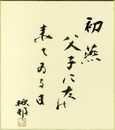 初燕
父子に友の
来てゐる日